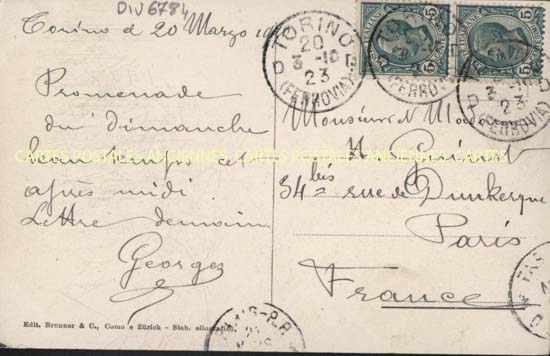 DIV6784
Torino d 20 Marzo
Promenade
du dimanche
beau temps cet
après midi
Lettre demain
Georges
Edit. Brunner & C., Como e Zürich - Stab. eliografico.
TORINO
20
3-10
23
(FERROVIA)
5
5
Monsieur et Madame
H.
34 bis rue de Dunkerque
Paris
France
CARTES POSTALES ANCIENNES CARTES POSTALES ANCIENNES CARTES
(FERROVIA)
23
(FERROVIA)